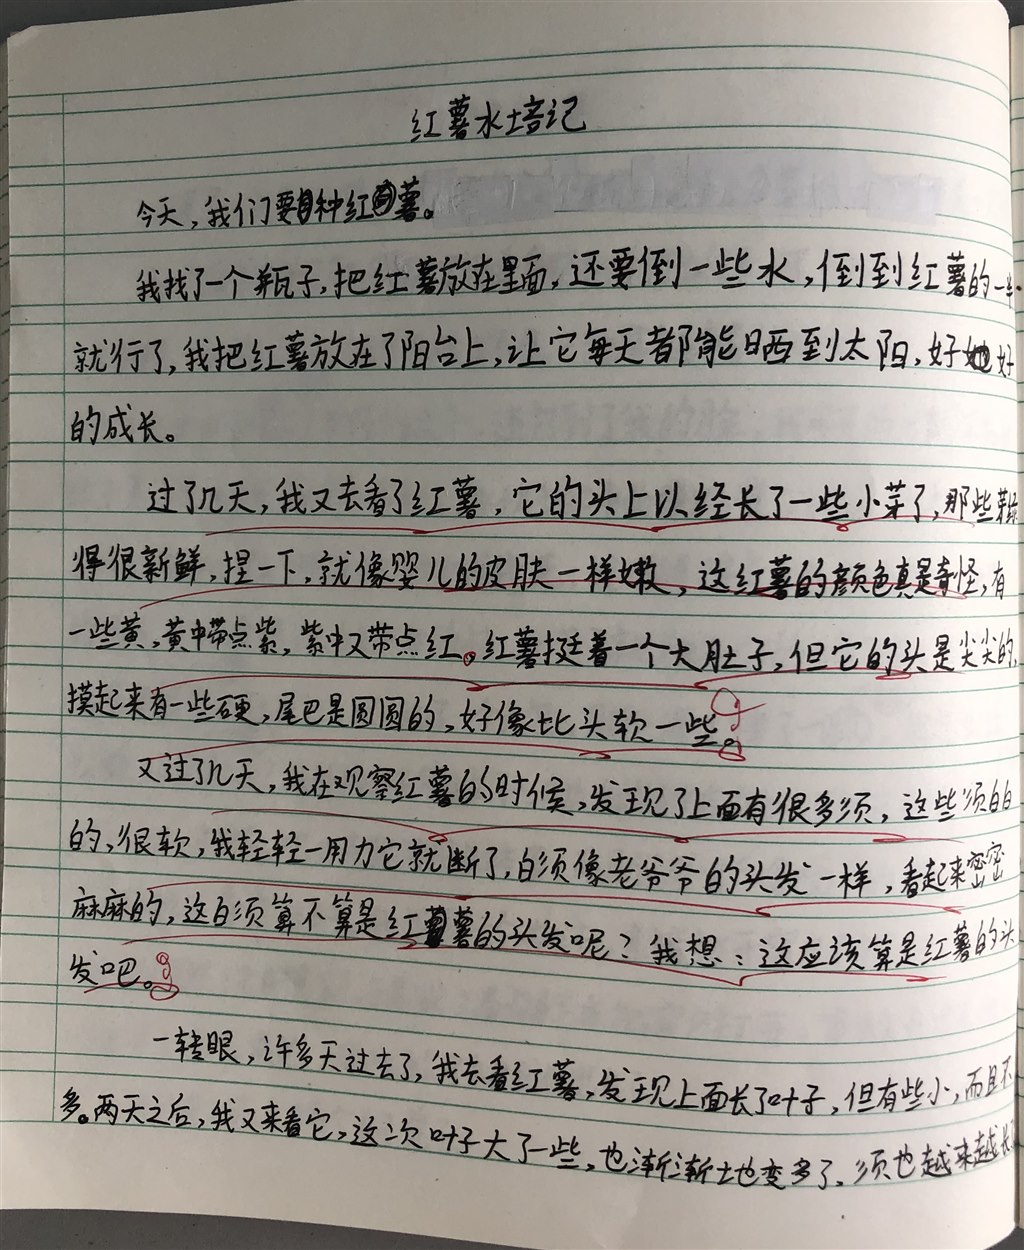 红薯水培记
今天，我们要种红薯。
我找了一个瓶子，把红薯放在里面，还要倒一些水，倒到红薯的一半
就行了，我把红薯放在了阳台上，让它每天都能晒到太阳，好好
的成长。
过了几天，我又去看了红薯，它的头上以经长了一些小芽了，那些芽
得很新鲜，捏一下，就像婴儿的皮肤一样嫩，这红薯的颜色真是奇怪，有
一些黄，黄中带点紫，紫中又带点红。红薯挺着一个大肚子，但它的头是尖尖的，
摸起来有一些硬，尾巴是圆圆的，好像比头软一些。
又过了几天，我在观察红薯的时候，发现了上面有很多须，这些须白白
的，很软，我轻轻一用力它就断了，白须像老爷爷的头发一样，看起来密密
麻麻的，这白须算不算是红薯的头发呢？我想：这应该算是红薯的头
发吧。
一转眼，许多天过去了，我去看红薯，发现上面长了叶子，但有些小，而且不
多。两天之后，我又来看它，这次叶子大了一些，也渐渐地变多了，须也越来越长